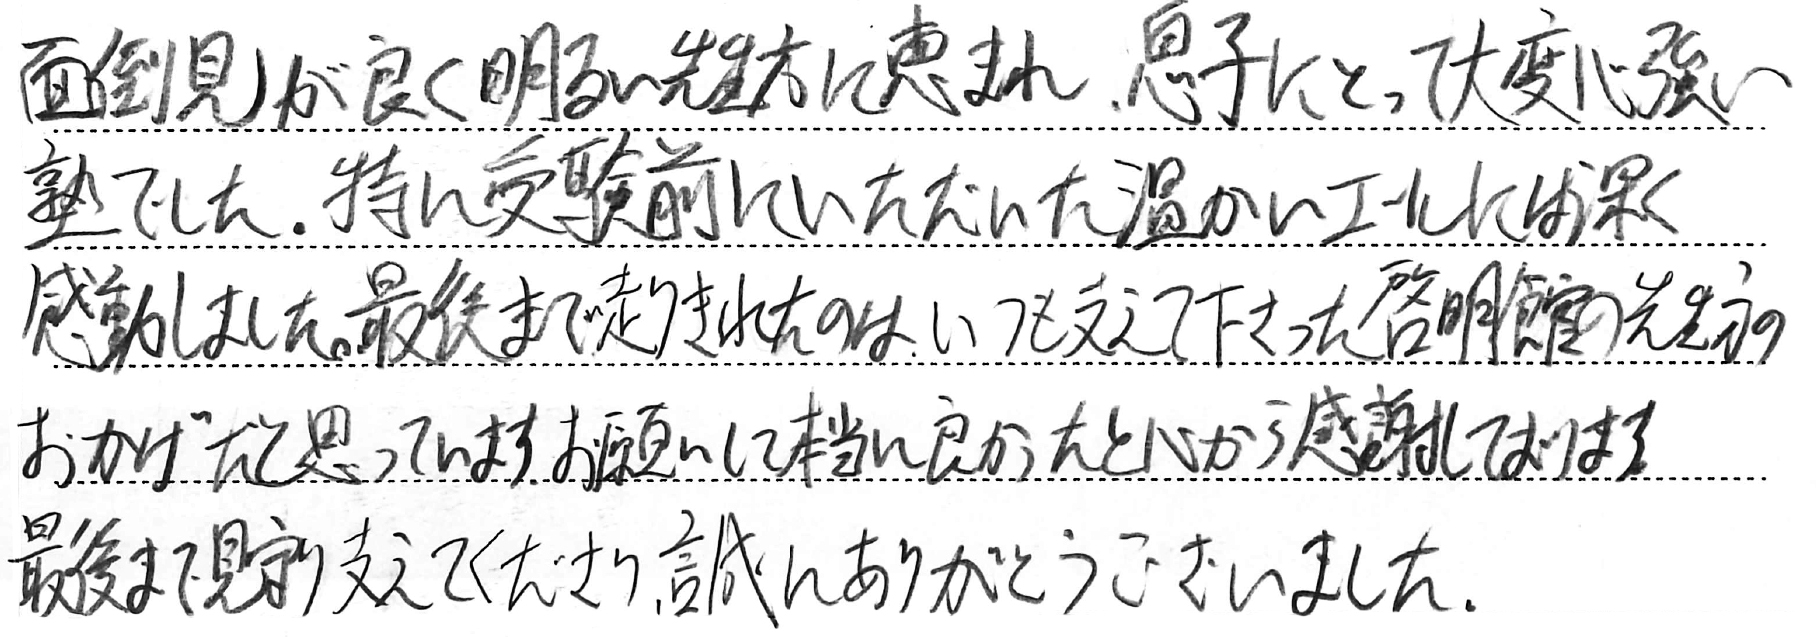 面倒見が良く明るい先生方に恵まれ、息子にとって大変心強い
塾でした。特に受験前にいただいた温かいエールには深く
感動しました。最後まで走りきれたのは、いつも支えて下さった啓明館の先生方の
おかげだと思っています。お願いして本当に良かったと心から感謝しております
最後まで見守り支えてくださり、誠にありがとうございました。